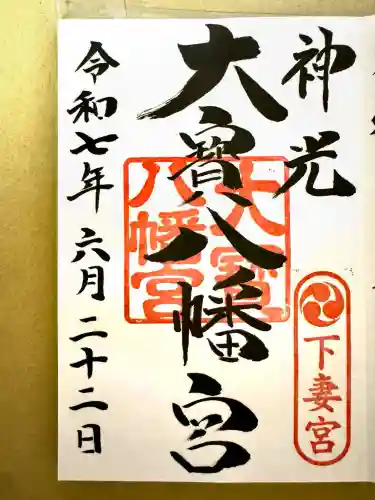 神光
大寳八幡宮
大寳
八幡宮
下妻宮
令和七年六月二十二日